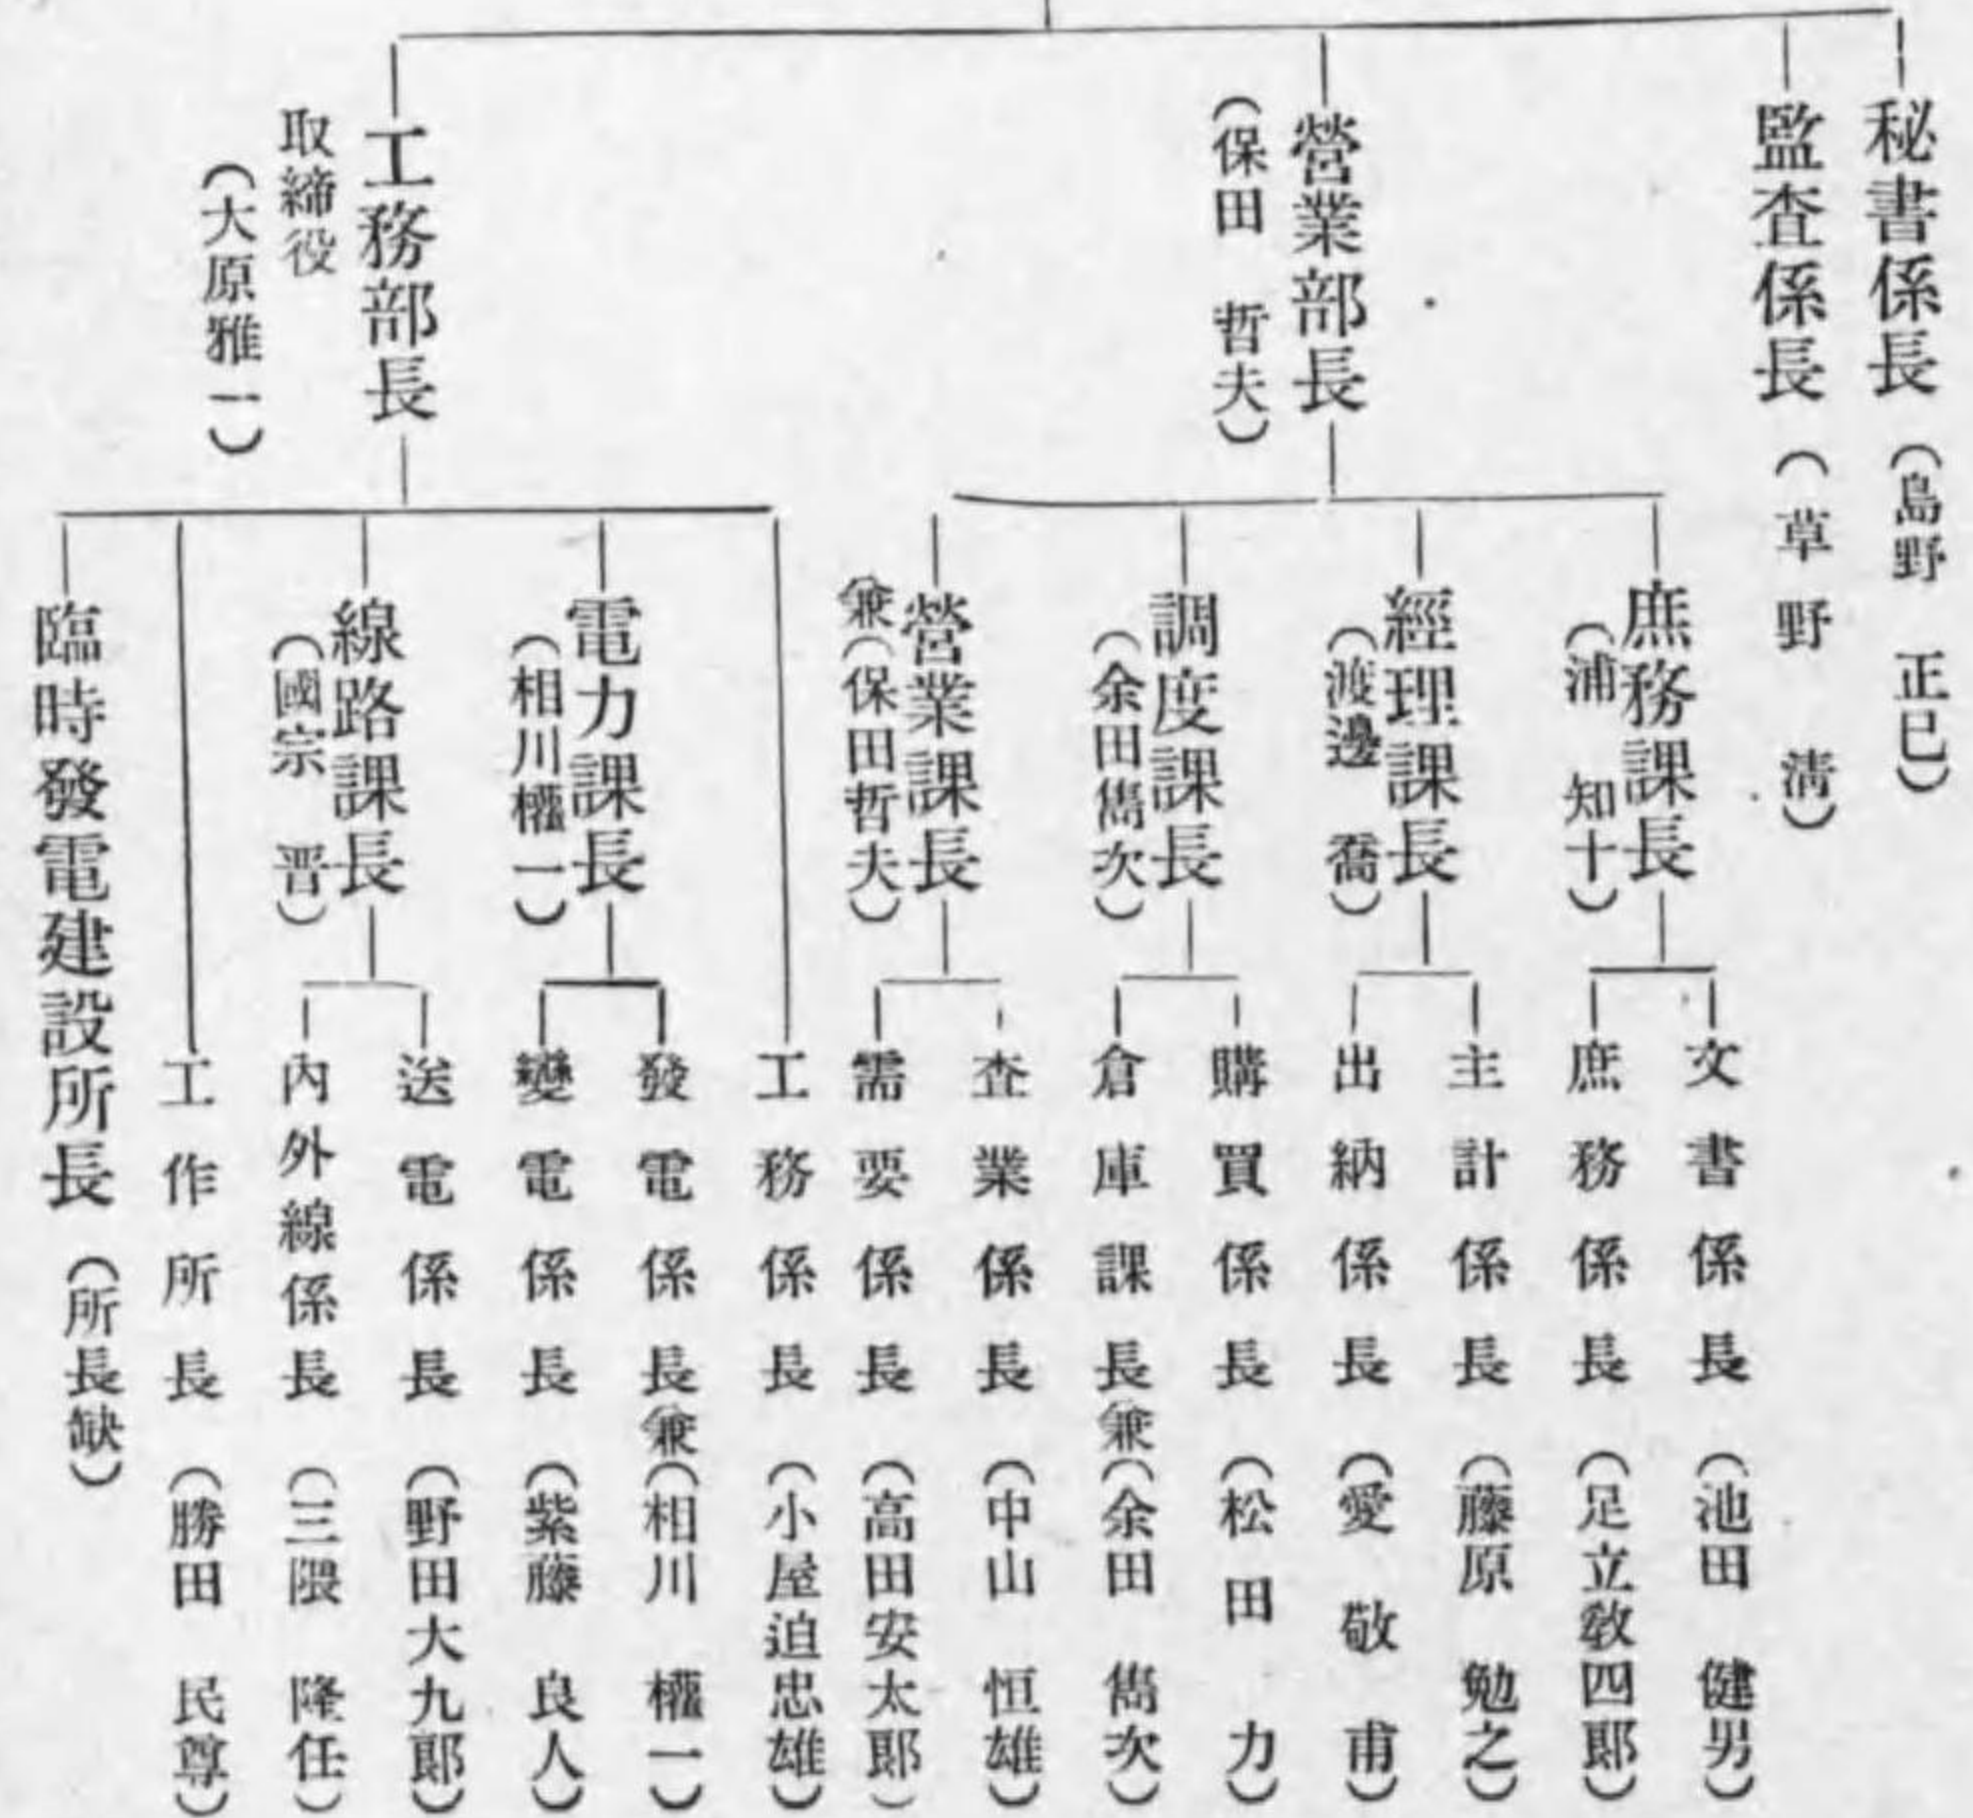 秘書係長（島野　正巳）
監査係長（草野　清）
營業部長
（保田　哲夫）
庶務課長
（浦　知十）
文書係長（池田　健男）
庶務係長（足立敎四郞）
經理課長
（渡邊　喬）
主計係長（藤原　勉之）
出納係長（愛　敬　甫）
調度課長
（余田雋次）
購買係長（松田　力）
倉庫課長㒹（余田　雋次）
營業課長
兼（保田哲夫）
査業係長（中山　恒雄）
需要係長（高田安太郞）
工務部長
取締役
（大原雅一）
工務係長（小屋迫忠雄）
電力課長
（相川權一）
發電係長兼（相川　權一）
變電係長（紫藤　良人）
線路課長
（國宗　晋）
送電係長（野田大九郞）
內外線係長（三隈　隆任）
工作所長（勝田　民尊）
臨時發電建設所長（所長缺）